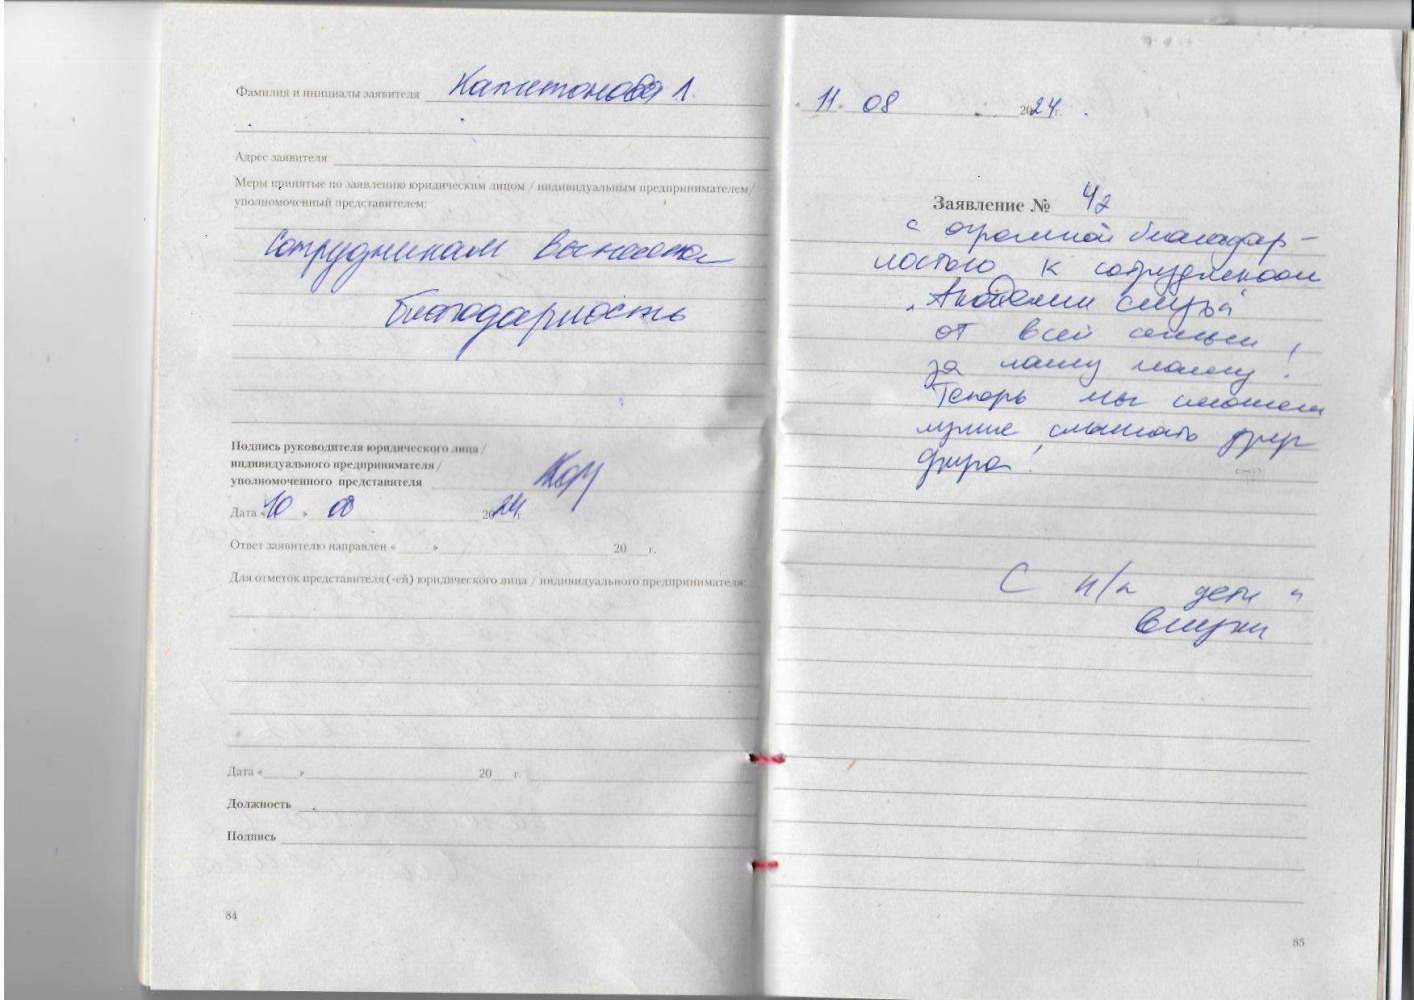 Фамилия и инициалы заявителя Капитонова Л.
Адрес заявителя
Меры принятые по заявлению юридическим лицом / индивидуальным предпринимателем/
уполномоченный представителем:
Сотрудникам вынесена
благодарность
Подпись руководителя юридического лица /
индивидуального предпринимателя /
уполномоченного представителя
Дата «10» 08 2024г.
Ответ заявителю направлен «____» ____ 20__г.
Для отметок представителя(-ей) юридического лица / индивидуального предпринимателя:
Дата «____» ____ 20__г.
Должность
Подпись
84
11. 08 2024г.
Заявление № 42
с огромной благодар-
ностью к сотрудникам
"Академии слуха"
от всей семьи,
за нашу маму!
Теперь мы сможем
лучше слышать друг
друга!
С н/п дети и
внуки
85